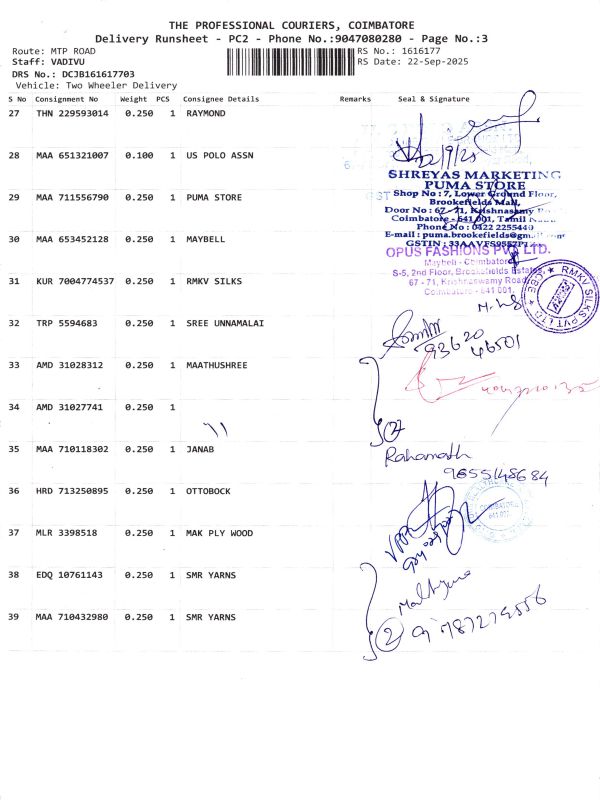 THE PROFESSIONAL COURIERS, COIMBATORE
Delivery Runsheet - PC2 - Phone No.:9047080280 - Page No.:3
Route: MTP ROAD
Staff: VADIVU
DRS No.: DCJB161617703
Vehicle: Two Wheeler Delivery
RS No.: 1616177
RS Date: 22-Sep-2025
S No Consignment No Weight PCS Consignee Details Remarks Seal & Signature
27 THN 229593014 0.250 1 RAYMOND
22/9/25
28 MAA 651321007 0.100 1 US POLO ASSN
SHREYAS MARKETING
PUMA STORE
29 MAA 711556790 0.250 1 PUMA STORE
Shop No : 7, Lower Ground Floor,
Brookefields Mall,
Door No : 67 - 71, Krishnasamy
Coimbatore - 641 001, Tamil
Phone No : 0422 2255440
E-mail : puma.brookefields@gm
30 MAA 653452128 0.250 1 MAYBELL
OPUS FASHIONS PVT LTD.
Mayhell - Coimbatore
S-5, 2nd Floor, Brookefields Estate,
67 - 71, Krishnaswamy Road
Coimbatore - 641 001.
31 KUR 7004774537 0.250 1 RMKV SILKS
RMKV SILKS PVT LTD
CBE
32 TRP 5594683 0.250 1 SREE UNNAMALAI
93620
46501
33 AMD 31028312 0.250 1 MAATHUSHREE
34 AMD 31027741 0.250 1
11
2
35 MAA 710118302 0.250 1 JANAB
Rahamath
9655148684
36 HRD 713250895 0.250 1 OTTOBOCK
COIMBATORE
641 001
37 MLR 3398518 0.250 1 MAK PLY WOOD
38 EDQ 10761143 0.250 1 SMR YARNS
39 MAA 710432980 0.250 1 SMR YARNS
2